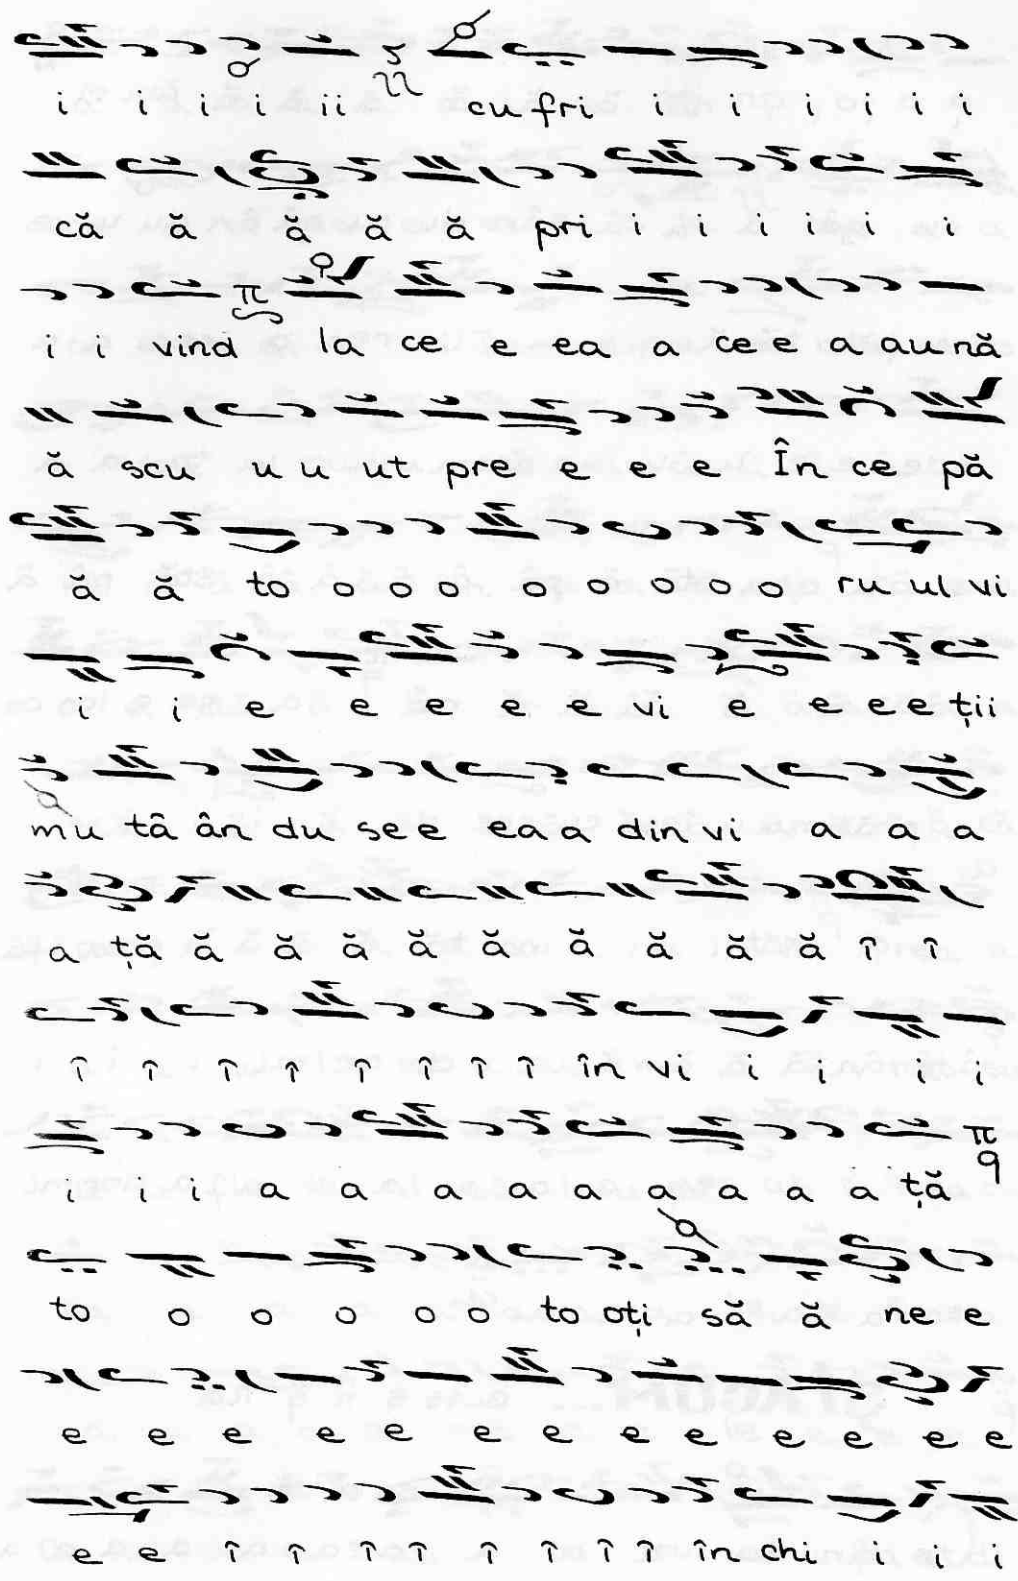 i i i i ii cu fri i i i i i i
că ă ă ă ă pri i i i i i i
i i vind la ce e ea a ce e a au nă
ă scu u u ut pre e e e În ce pă
ă ă to o o o o o o o o ru ul vi
i i e e e e e vi e e e e ții
mu tâ ân du se e ea a din vi a a a
a ță ă ă ă ă ă ă ă ă ă î î
î î î î î î î î în vi i i i i
i i i a a a a a a a a a ță
to o o o o o to oți să ă ne e e
e e e e e e e e e e e e e
e e î î î î î î î î în chi i i i